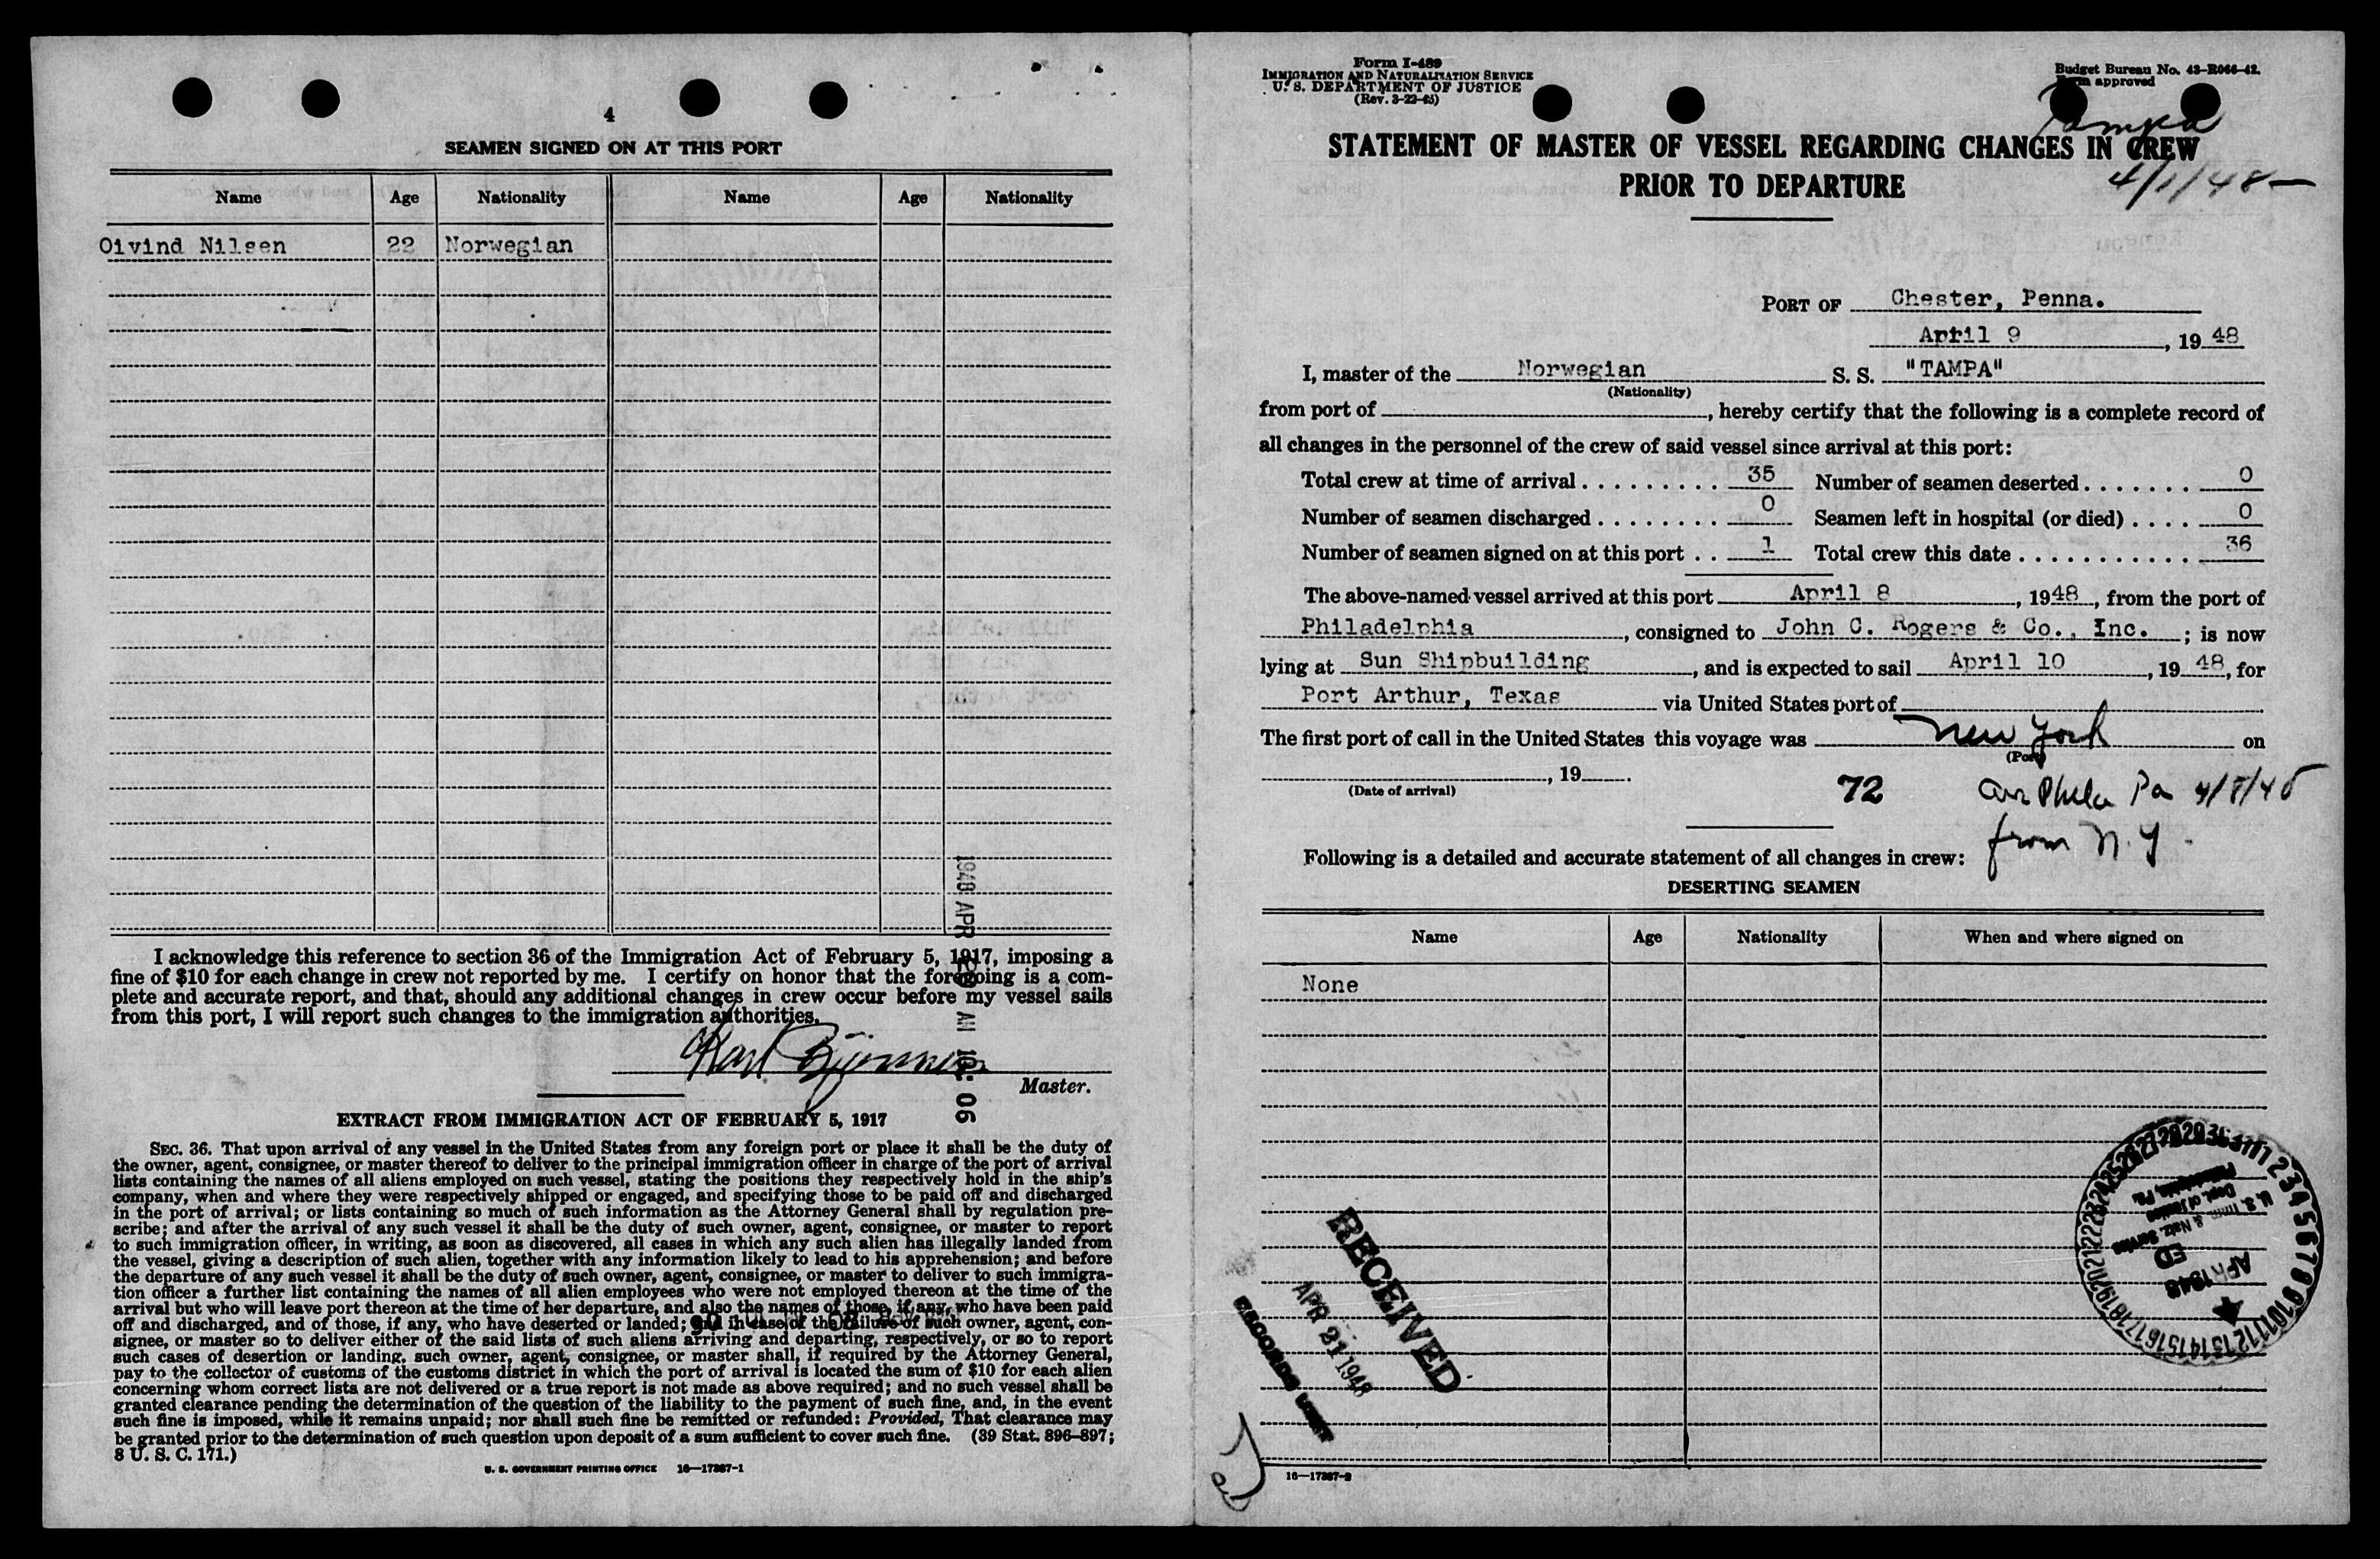 4
SEAMEN SIGNED ON AT THIS PORT
Name Age Nationality Name Age Nationality
Oivind Nilsen 22 Norwegian
I acknowledge this reference to section 36 of the Immigration Act of February 5, 1917, imposing a
fine of $10 for each change in crew not reported by me. I certify on honor that the foregoing is a com-
plete and accurate report, and that, should any additional changes in crew occur before my vessel sails
from this port, I will report such changes to the immigration authorities.
Karl
Master.
1948 APR AM 10: 06
EXTRACT FROM IMMIGRATION ACT OF FEBRUARY 5, 1917
SEC. 36. That upon arrival of any vessel in the United States from any foreign port or place it shall be the duty of
the owner, agent, consignee, or master thereof to deliver to the principal immigration officer in charge of the port of arrival
lists containing the names of all aliens employed on such vessel, stating the positions they respectively hold in the ship's
company, when and where they were respectively shipped or engaged, and specifying those to be paid off and discharged
in the port of arrival; or lists containing so much of such information as the Attorney General shall by regulation pre-
scribe; and after the arrival of any such vessel it shall be the duty of such owner, agent, consignee, or master to report
to such immigration officer, in writing, as soon as discovered, all cases in which any such alien has illegally landed from
the vessel, giving a description of such alien, together with any information likely to lead to his apprehension; and before
the departure of any such vessel it shall be the duty of such owner, agent, consignee, or master to deliver to such immigra-
tion officer a further list containing the names of all alien employees who were not employed thereon at the time of the
arrival but who will leave port thereon at the time of her departure, and also the names of those, if any, who have been paid
off and discharged, and of those, if any, who have deserted or landed; and in case of the failure of such owner, agent, con-
signee, or master so to deliver either of the said lists of such aliens arriving and departing, respectively, or so to report
such cases of desertion or landing, such owner, agent, consignee, or master shall, if required by the Attorney General,
pay to the collector of customs of the customs district in which the port of arrival is located the sum of $10 for each alien
concerning whom correct lists are not delivered or a true report is not made as above required; and no such vessel shall be
granted clearance pending the determination of the question of the liability to the payment of such fine, and, in the event
such fine is imposed, while it remains unpaid; nor shall such fine be remitted or refunded: Provided, That clearance may
be granted prior to the determination of such question upon deposit of a sum sufficient to cover such fine. (39 Stat. 896–897;
8 U. S. C. 171.)
U. S. GOVERNMENT PRINTING OFFICE 16—17367-1
Form I-489
IMMIGRATION AND NATURALIZATION SERVICE
U. S. DEPARTMENT OF JUSTICE
(Rev. 3-22-45)
Budget Bureau No. 43-R066-42.
Form approved
Tampa
STATEMENT OF MASTER OF VESSEL REGARDING CHANGES IN CREW
PRIOR TO DEPARTURE
PORT OF Chester, Penna.
April 9, 19 48
I, master of the Norwegian S. S. "TAMPA"
(Nationality)
from port of , hereby certify that the following is a complete record of
all changes in the personnel of the crew of said vessel since arrival at this port:
Total crew at time of arrival . . . . . . . . . 35 Number of seamen deserted . . . . . . . 0
Number of seamen discharged . . . . . . . . 0 Seamen left in hospital (or died) . . . . 0
Number of seamen signed on at this port . . 1 Total crew this date . . . . . . . . . . . 36
The above-named vessel arrived at this port April 8, 1948, from the port of
Philadelphia, consigned to John C. Rogers & Co., Inc. ; is now
lying at Sun Shipbuilding, and is expected to sail April 10, 19 48, for
Port Arthur, Texas via United States port of
The first port of call in the United States this voyage was New York on
(Port)
, 19 .
(Date of arrival)
72
arr Phila Pa 4/8/48
from N. Y.
Following is a detailed and accurate statement of all changes in crew:
DESERTING SEAMEN
Name Age Nationality When and where signed on
None
RECEIVED
APR 21 1948
U. S. Imm. & Natz. Service
Dept. of Justice
Philadelphia, Pa.
16—17367-2